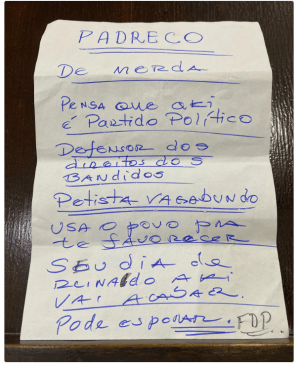 PADRECO
De merda
Pensa que aki
é Partido Político
Defensor dos
direitos dos
BANDIDOS
Petista VAGABUNDO
USA O POVO PRA
te FAVORECER
SEU DIA de
REINADO AKI
VAI ACABAR.
Pode esperar. FDP.